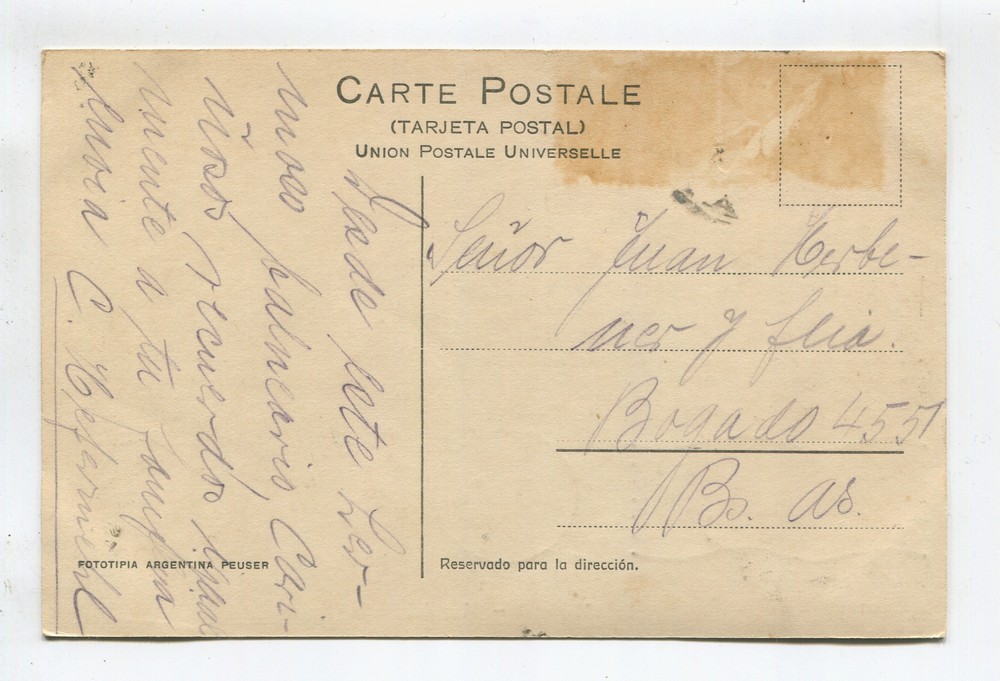 CARTE POSTALE
(TARJETA POSTAL)
UNION POSTALE UNIVERSELLE
Desde este her-
moso balneario, Cari-
ños recuerdos
mente a tu
C.
Señor Juan Herbe-
ner y flia.
Bogado 4551
Bs. as.
FOTOTIPIA ARGENTINA PEUSER
Reservado para la dirección.